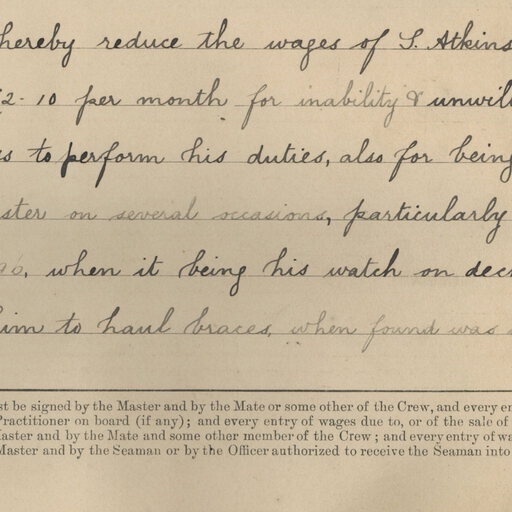 hereby reduce the wages of S. Atkins
2-10 per month for inability & unwill
to perform his duties, also for being
on several occasions, particularly
when it being his watch on deck
him to haul braces, when found was
st be signed by the Master and by the Mate or some other of the Crew, and every en
Practitioner on board (if any); and every entry of wages due to, or of the sale of
Master and by the Mate and some other member of the Crew; and every entry of wa
Master and by the Seaman or by the Officer authorized to receive the Seaman into